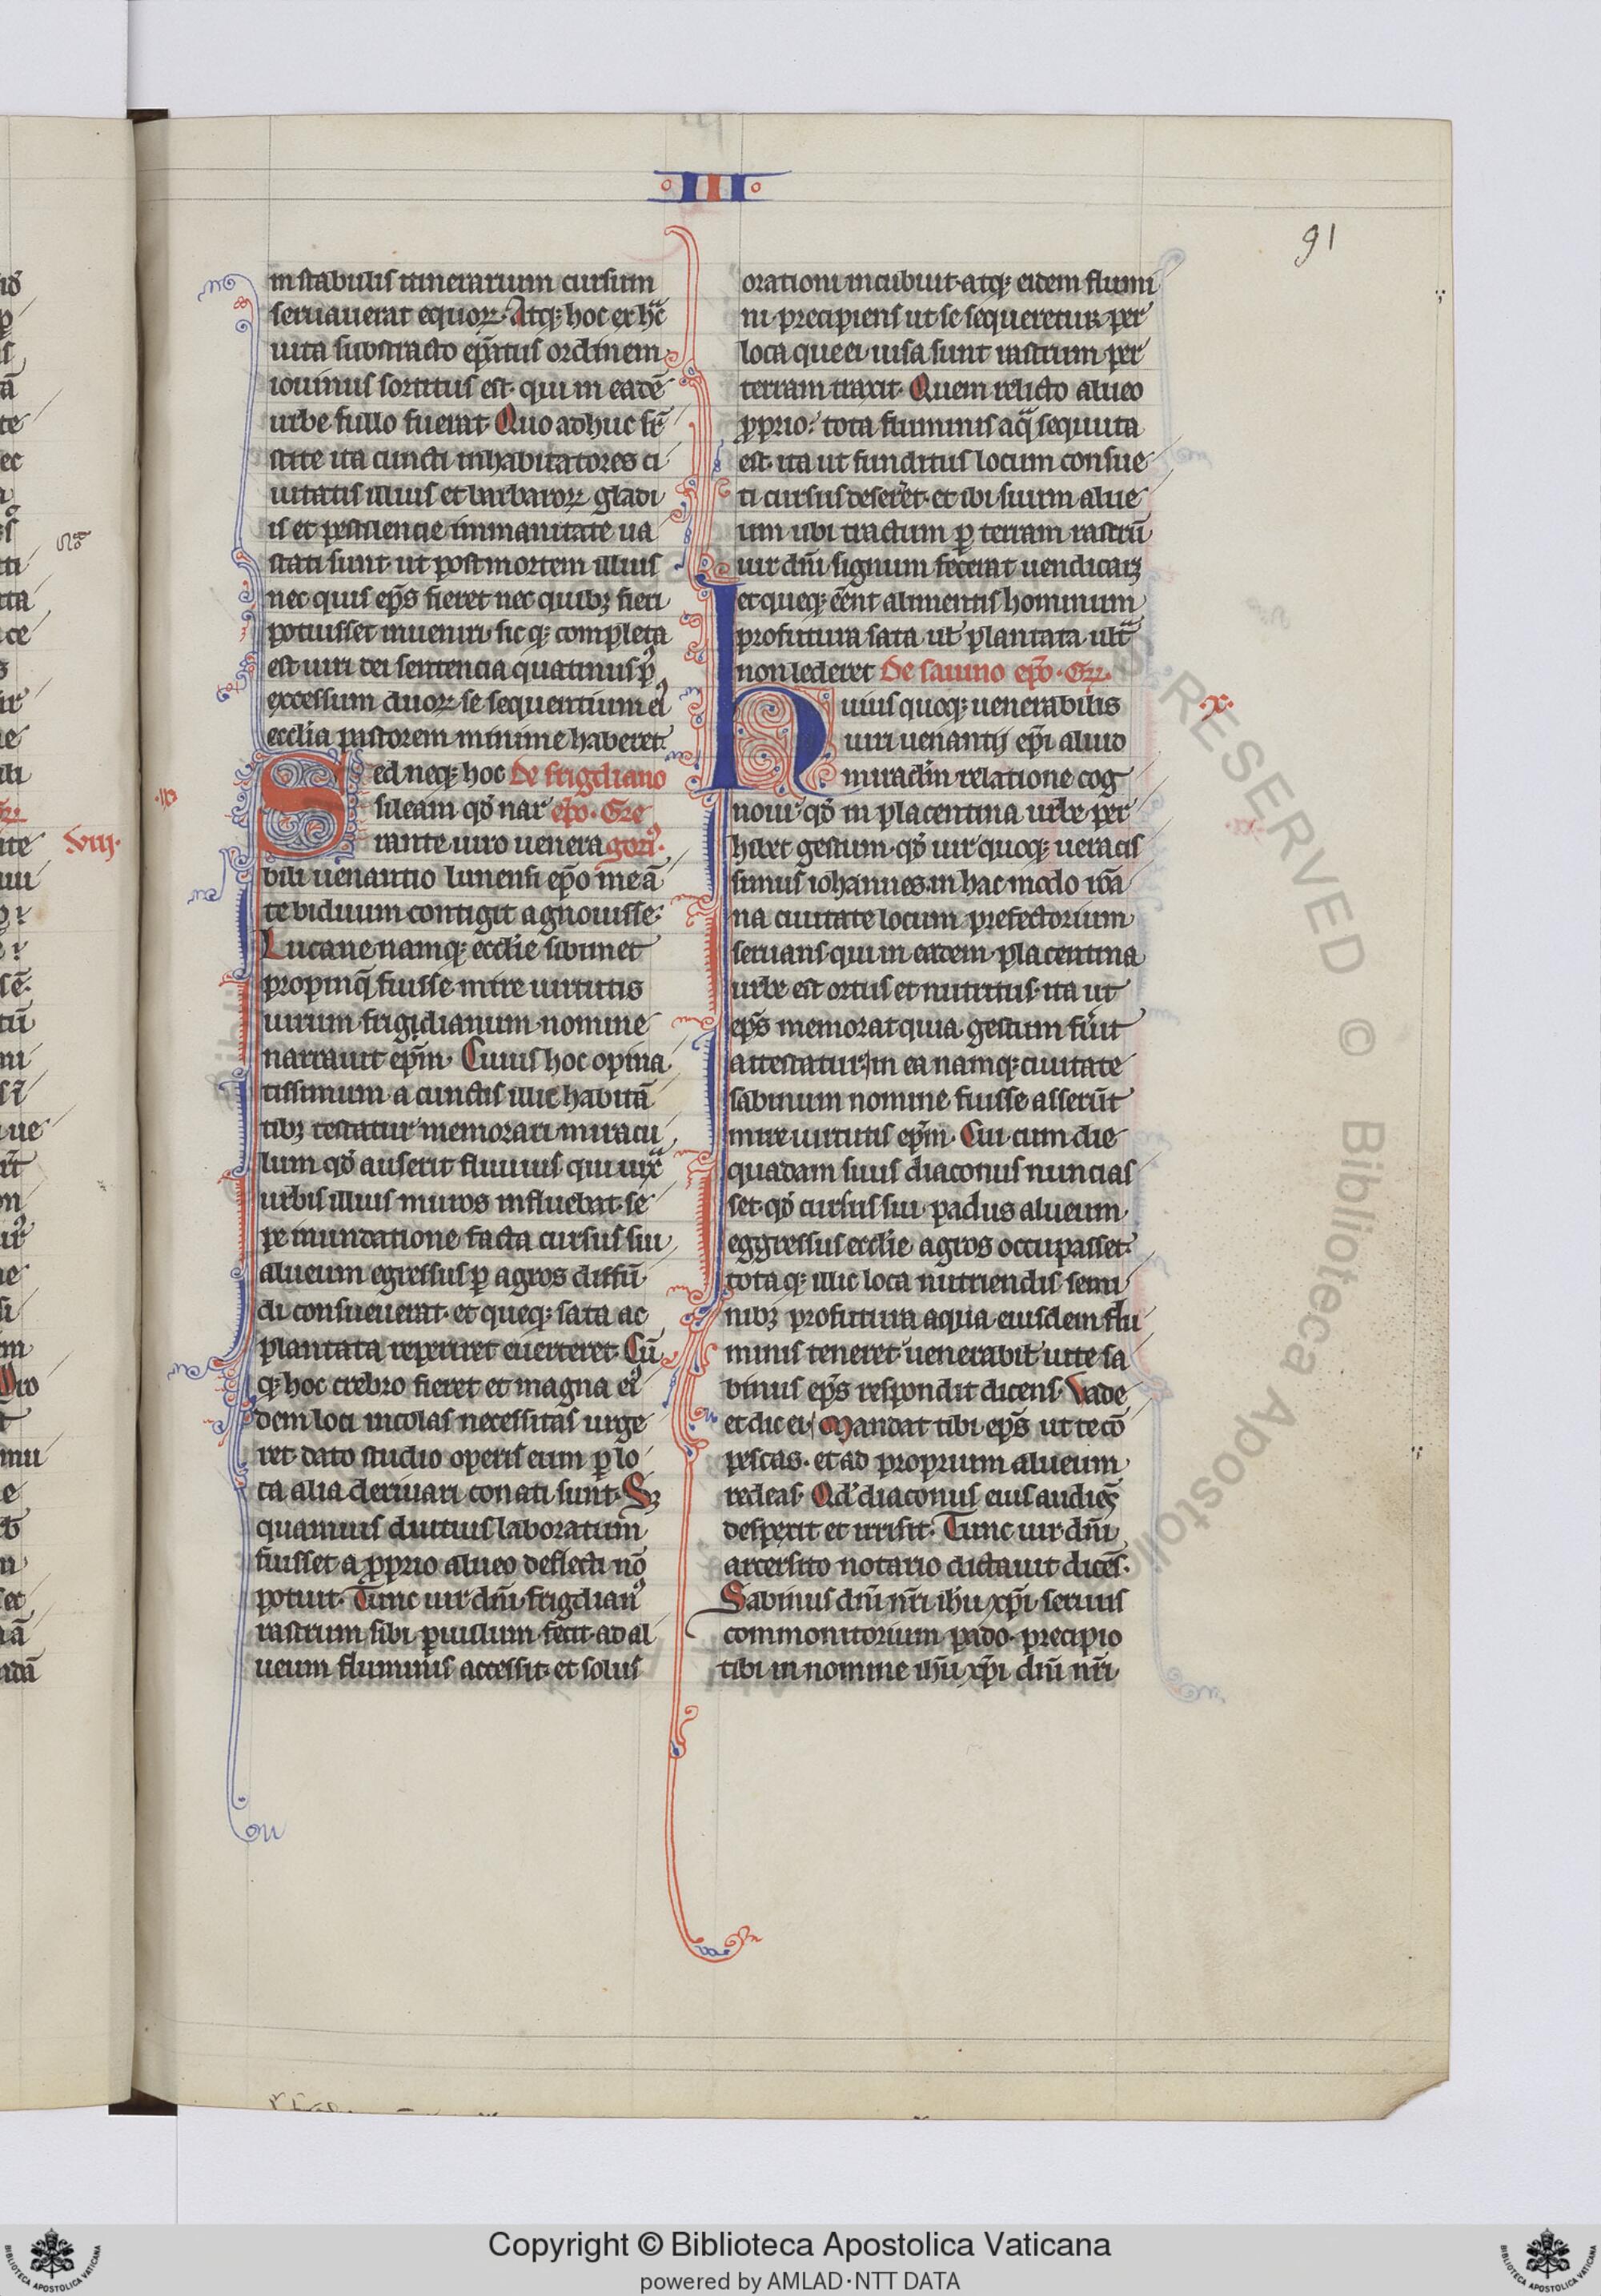 III
91
in stabulis itinerarium cursum
seruauerat equoꝝ. Atqꝫ hoc ex hͣc
uita subtracto ep̄atus ordinem
iouinus sortitus est. qui in eadē
urbe fullo fuerat. Quo adhuc sē
stite ita cuncti inhabitatores ci
uitatis illius et barbaroꝝ gladi
is et pestilencie immanitate ua
stati sunt. ut post mortem illius
nec quis ep̄s fieret nec quibꝫ fieri
potuisset inueniri. sic qꝫ completa
est uiri dei sentencia quatinus pꝰ
excessum duoꝝ se sequentium eiꝰ
ecclia pastorem minime haberet.
Sed neqꝫ hoc De frigdiano
sileam qd̓ nar ep̄o. Gre
rante uiro uenera gorꝰ.
bili uenantio lunensi ep̄o me ā
te biduum contigit agnouisse.
Lucane namqꝫ ecclie sibimet
propinq̄ fuisse mire uirtutis
uirum frigidianum nomine
narrauit ep̄m. Cuius hoc opina
tissimum a cunctis illic habitā
tibꝫ testatur memorari miracu
lum qd̓ auserit fluuius qui iuxͣ
urbis illius muros influebat. se
pe inundatione facta cursus sui
alueum egressus ꝑ agros diffū
di consueuerat. et queqꝫ sata ac
plantata reperiret euerteret. Cū
qꝫ hoc crebro fieret et magna eiꝰ
dem loci incolas necessitas urge
ret. dato studio operis eum ꝑ lo
ca alia deriuari conati sunt. Sꝫ
quamuis diutius laboratum
fuisset a ꝓprio alueo deflecti nō
potuit. Tunc uir dn̄i frigdianꝰ
rastrum sibi ꝑuulum fecit. ad al
ueum fluminis accessit. et solus
orationi incubuit. atqꝫ eidem flumi
ni precipiens ut se sequeretur. per
loca que ei uisa sunt rastrum per
terram traxit. Quem relicto alueo
ꝓprio. tota fluminis aq̄ sequuta
est. ita ut funditus locum consue
ti cursus deseret. et ibi suum alue
um ubi tractum ꝑ terram rastrū
uir dn̄i signum fecerat uendicarꝫ
et queqꝫ eēnt alimentis hominum
profutura sata ut plantata ultͣ
non lederet De sauino ep̄o. Gꝝ.
x.
Huius quoqꝫ uenerabilis
uiri uenantij ep̄i aliud
miraclm̄ relatione cog
noui. qd̓ in placentina urbe per
hibet gestum. qd̓ uir quoqꝫ ueracis
simus iohannes. in hac modo ro̅a
na ciuitate locum prefectorium
seruans. qui in eadem placentina
urbe est ortus et nutritus. ita ut
ep̄s memorat quia gestum fuit
attestatur. In ea namqꝫ ciuitate
sabinum nomine fuisse asserūt
mire uirtutis ep̄m. Cui cum die
quadam suus diaconus nuncias
set. qd̓ cursus sui padus alueum
eggressus ecclie agros occupasset.
totaqꝫ illic loca nutriendis semi
nibꝫ profutura aqua eiusdem flu
minis teneret. uenerabil̓ uite sa
binus ep̄s respondit dicens. Vade
et dic ei. Mandat tibi ep̄s ut te cō
pescas. et ad proprium alueum
redeas. Qd̓ diaconus eius audiēs
despexit et irrisit. Tunc uir dn̄i
arcersito notario dictauit dicēs.
Sabinus dn̄i nr̄i ihū xp̄i seruus
commonitorium pado. precipio
tibi in nomine ihū xp̄i dn̄i nr̄i
viij.
RESERVED © Biblioteca Apostolica
Copyright © Biblioteca Apostolica Vaticana
powered by AMLAD·NTT DATA
BIBLIOTECA APOSTOLICA VATICANA
BIBLIOTECA APOSTOLICA VATICANA